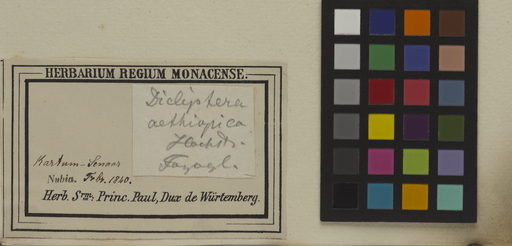 HERBARIUM REGIUM MONACENSE.
Dicliptera
aethiopica
Hochst.
Fazogl.
Kartum-Sennar
Nubia. Febr. 1840.
Herb. Srmi. Princ. Paul, Dux de Würtemberg.